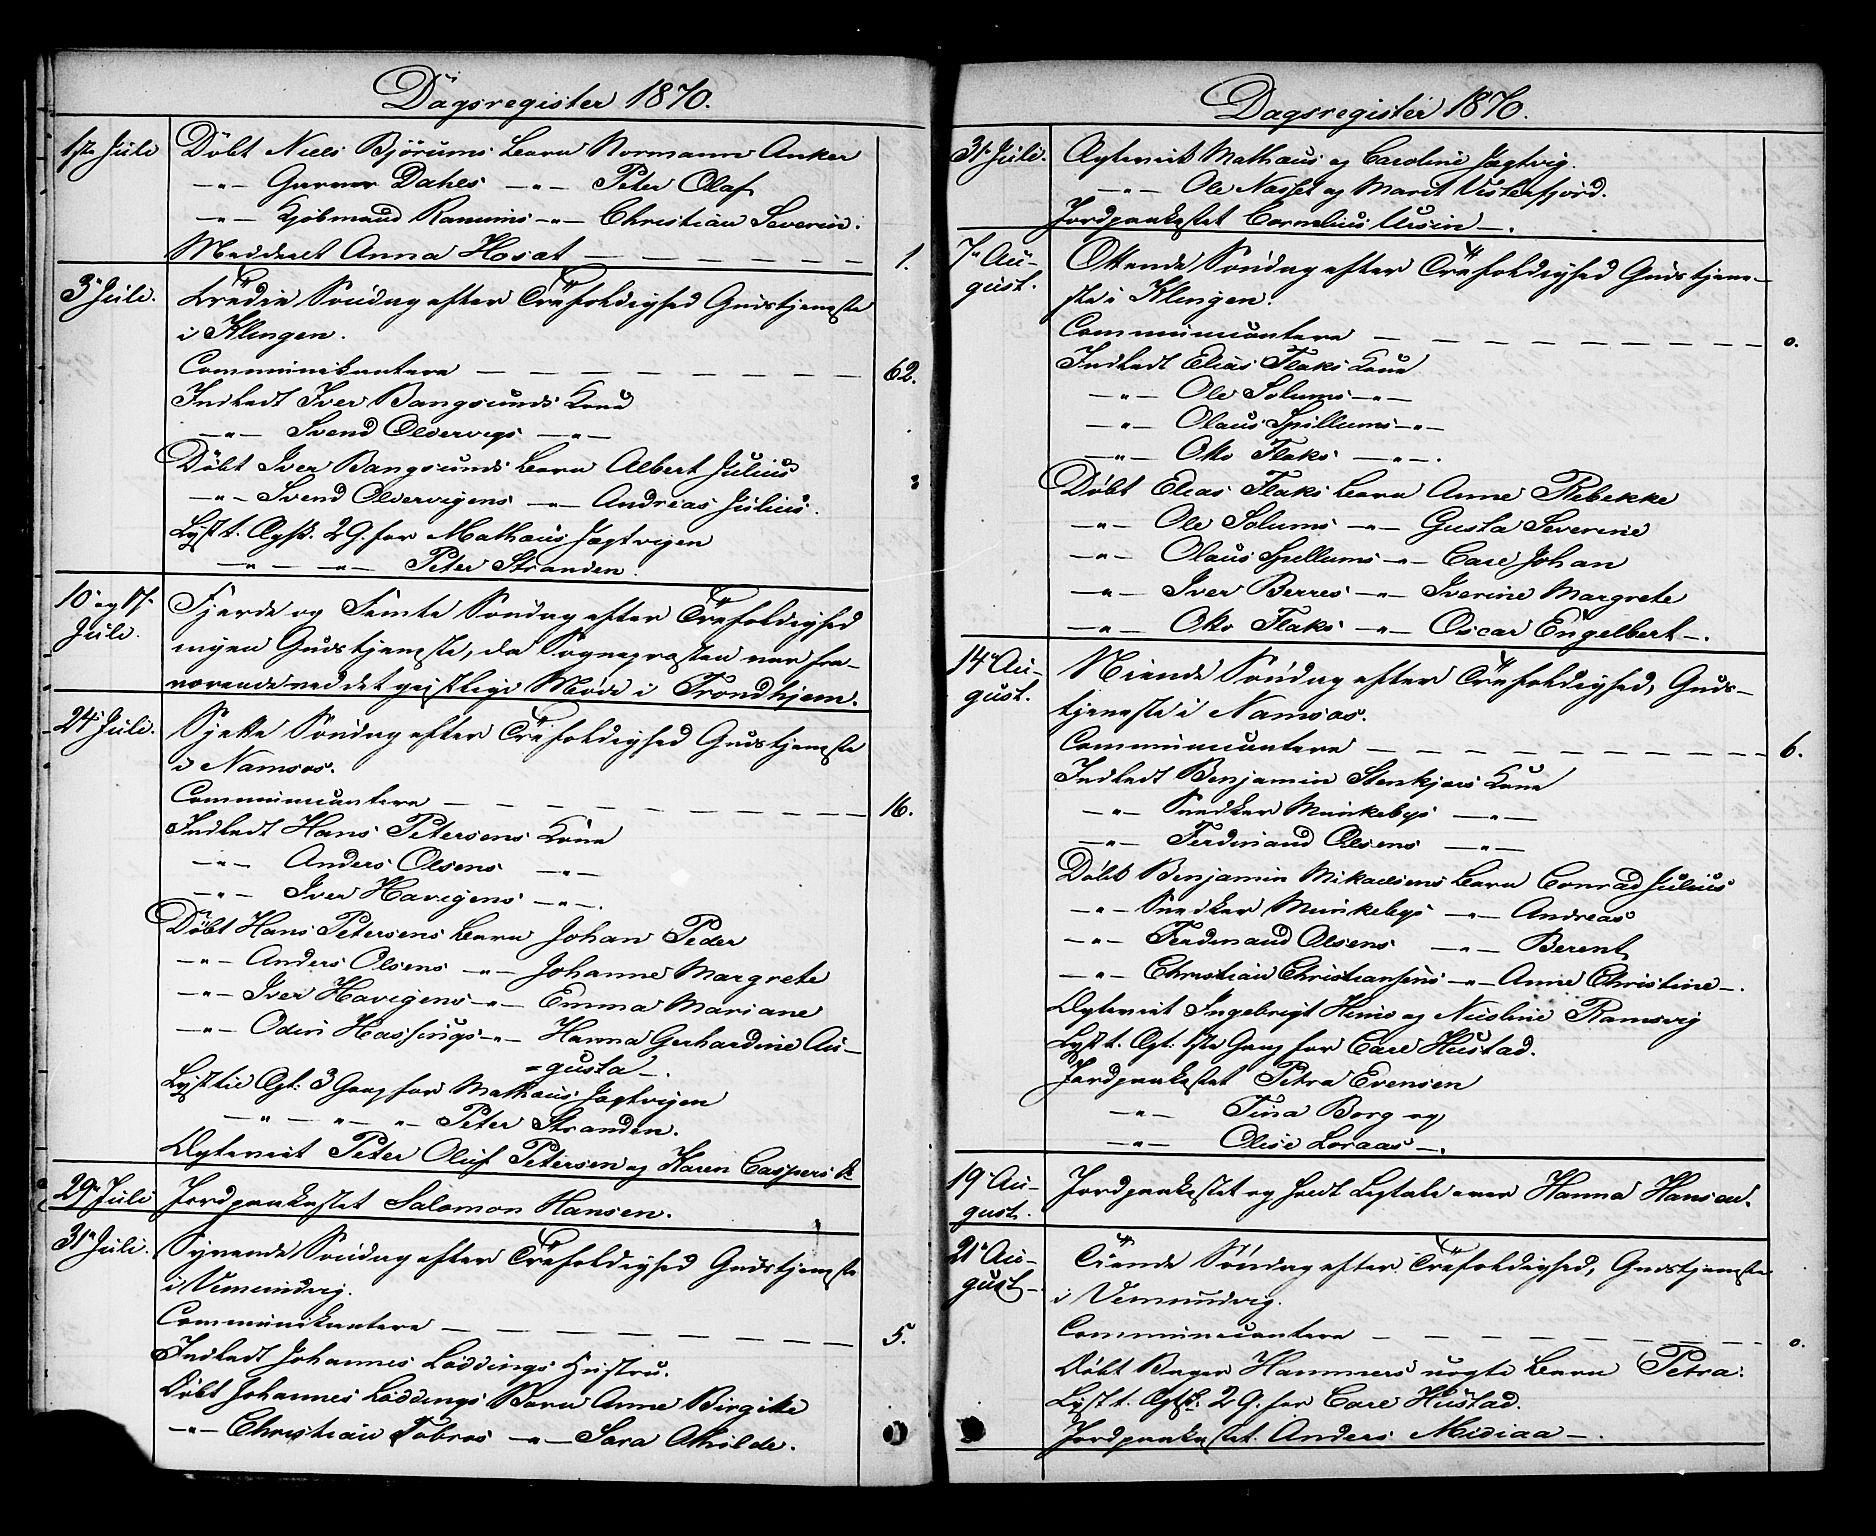 Dagsregister 1870.
1ste Juli
Döbt Niels Björums Barn Normann Anker
—"— Garver Dahls —"— Peter Olaf
—"— Kjöbmand Ranums —"— Christian Severin.
Meddeelt Anna Hosat — 1.
3die Juli.
Tredie Söndag efter Trefoldighed Gudstjeneste
i Klingen.
Communikantere — 62.
Indledt Iver Bangsunds Kone
—"— Svend Olvervigs —"—
Döbt Iver Bangsunds Barn Albert Julius
—"— Svend Olvervigens —"— Andreas Julius.
Lyst t. Ægtsk. 2 G. for Mathæus Jægtvigen
—"— —"— Peter Stranden.
10de og 17de Juli.
Fjerde og Femte Söndag efter Trefoldighed
ingen Gudstjeneste, da Sognepresten var fra-
værende ved det geistlige Möde i Trondhjem.
24de Juli.
Sjette Söndag efter Trefoldighed Gudstjeneste
i Namsos.
Communicantere — 16.
Indledt Hans Petersens Kone
—"— Anders Olsens —"—
—"— Iver Havigens —"—.
Döbt Hans Petersens Barn Johan Peder
—"— Anders Olsens —"— Johanne Margrete
—"— Iver Havigens —"— Emma Mariane
—"— Odin Hassings —"— Hanna Gerhardine Au-
=gusta —.
Lyst til Ægt: 3 Gang for Mathæus Jægtvigen
—"— —"— " — Peter Stranden.
Ægteviet Peter Oluf Petersen og Karen Caspersdr
29de Juli
Jordpaakastet Salomon Hansen.
31te Juli.
Syvende Söndag efter Trefoldighed Gudstjeneste
i Vemundvig.
Communikantere — 5.
Indledt Johannes Löddings Hustru.
Döbt Johannes Löddings Barn Anne Birgitte
—"— Christian Fobros —"— Sara Othilde.
Dagsregister 1870.
31te Juli.
Ægteviet Mathæus og Caroline Jægtvig.
—"— Ole Næsset og Marit Visterfjord.
Jordpaakastet Cornelius Ursin —.
7de August.
Ottende Söndag efter Trefoldighed Gudstjene-
ste i Klingen.
Communicantere — 0.
Indledt Elias Flaks Kone
—"— Ole Solums —"—
—"— Olaus Spillums —"—
—"— Otto Flaks —"—.
Döbt Elias Flaks Barn Anne Rebekke
—"— Ole Solums —"— Gusta Severine
—"— Olaus Spillums —"— Carl Johan
—"— Iver Berres —"— Iverine Margrete
—"— Otto Flaks —"— Oscar Engelbert —.
14de August.
Niende Söndag efter Trefoldighed, Guds-
tjeneste i Namsos.
Communicantere — 6.
Indledt Benjamin Stenkjærs Kone
—"— Snedker Munkebys —"—
—"— Ferdinand Olsens —"—
Döbt Benjamin Mikaelsens Barn Conrad Julius
—"— Snedker Munkebys —"— Andreas
—"— Ferdinand Olsens —"— Berent
—"— Christian Christiansens —"— Anne Christine —.
Ægteviet Ingebrigt Himo og Nicoline Ramsvig
Lyst t. Ægt: 1ste Gang for Carl Hustad.
Jordpaakastet Petra Evensen
—"— Tina Borg og
—"— Olise Loraas —.
19de August.
Jordpaakastet og holdt Ligtale over Hanna Hansen.
21de August —
Tiende Söndag efter Trefoldighed, Gudstjeneste
i Vemundvig.
Communicantere — 0.
Döbt Bager Hammers uægte Barn Petra.
Lyst t. Ægtsk: 2 G. for Carl Hustad.
Jordpaakastet Anders Mediaa —.